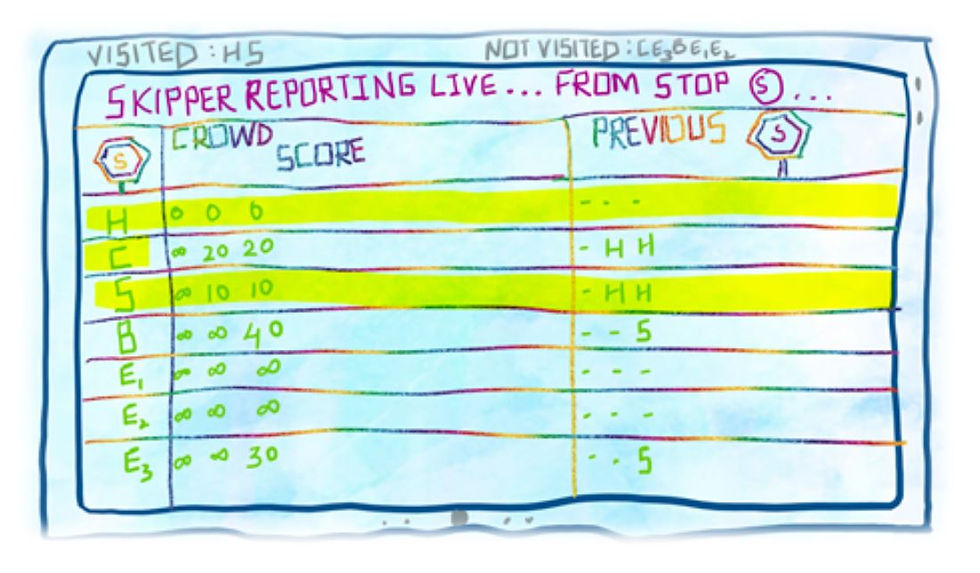 VISITED : HS NOT VISITED : CE₃BE₁E₂
SKIPPER REPORTING LIVE... FROM STOP S ...
S CROWD SCORE PREVIOUS S
H 0 0 0 - - -
C ∞ 20 20 - H H
S ∞ 10 10 - H H
B ∞ ∞ 40 - - S
E₁ ∞ ∞ ∞ - - -
E₂ ∞ ∞ ∞ - - -
E₃ ∞ ∞ 30 - - S